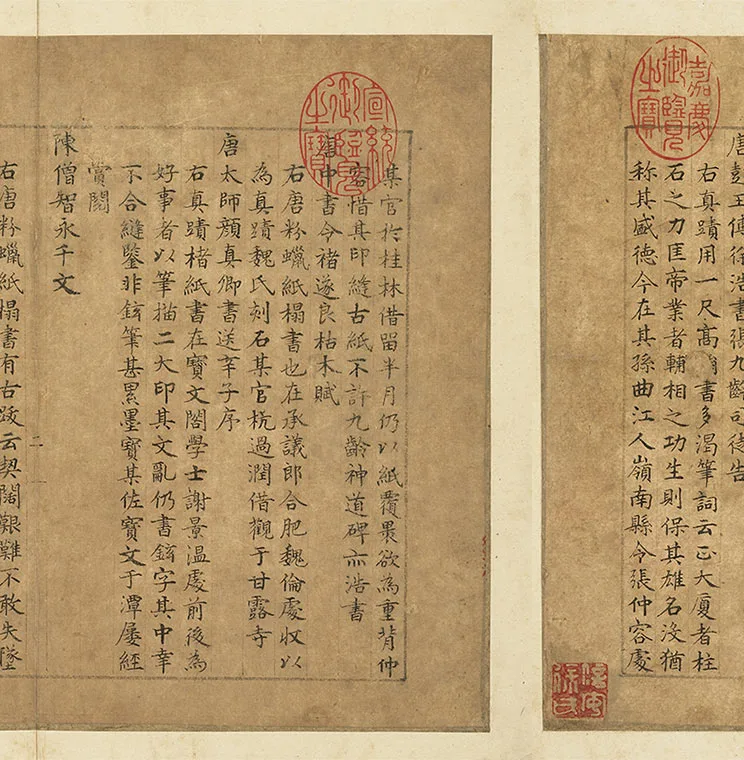 嘉慶御覽之寶
唐彭王傅徐浩書張九齡司徒告
右真蹟用一尺高絹書多渴筆詞云正大廈者柱
石之力匡帝業者輔相之功生則保其雄名沒猶
称其盛德今在其孫曲江人嶺南縣令張仲容處
宣統御覽之寶
某官於桂林借留半月仍以紙覆褁欲為重背仲
容惜其印縫古紙不許九齡神道碑亦浩書
唐中書令褚遂良枯木賦
右唐粉蠟紙搨書也在承議郎合肥魏倫處収以
為真蹟魏氏刻石某官杭過潤借觀于甘露寺
唐太師顔真卿書送辛子序
右真蹟楮紙書在寶文閣學士謝景溫處前後為
好事者以筆描二大印其文亂仍書鉉字其中幸
不合縫鑒非鉉筆甚累墨寳某佐寶文于潭屢經
賞閱
陳僧智永千文
二
右唐粉蠟紙搨書有古跋云契闊艱難不敢失墜